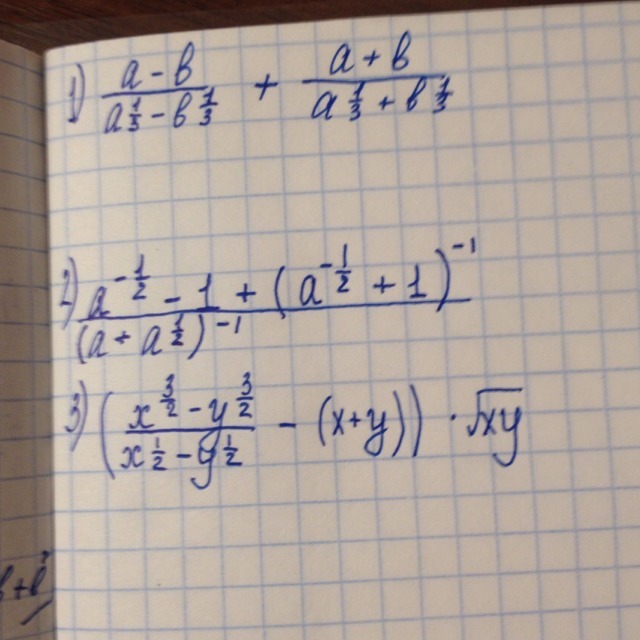 1) (a - b)/(a^(1/3) - b^(1/3)) + (a + b)/(a^(1/3) + b^(1/3))
2) (a^(-1/2) - 1 + (a^(-1/2) + 1)^(-1))/((a + a^(1/2))^(-1))
3) ((x^(3/2) - y^(3/2))/(x^(1/2) - y^(1/2)) - (x+y)) · √(xy)